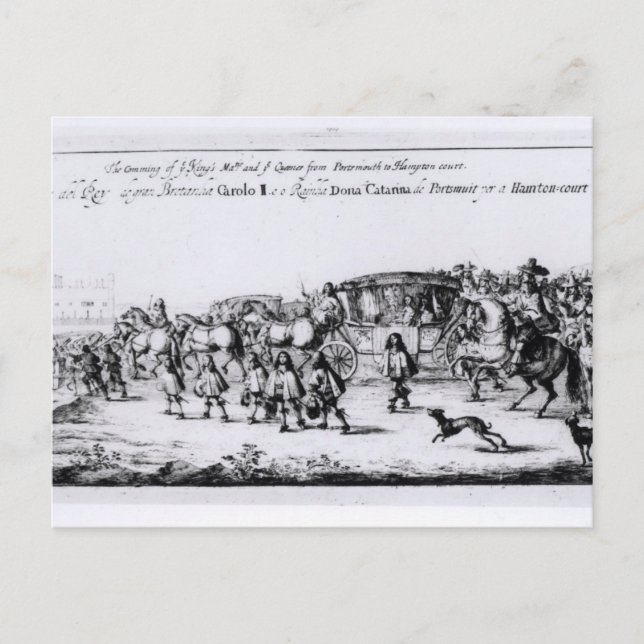 The Comming of yͤ King's Maᵗⁱᵉ and yͤ Queenes from Portsmouth to Hampton court.
del Rey de gran Bretanha Carolo II. e o Rainha Dona Catarina de Portsmuit per a Hamton=court